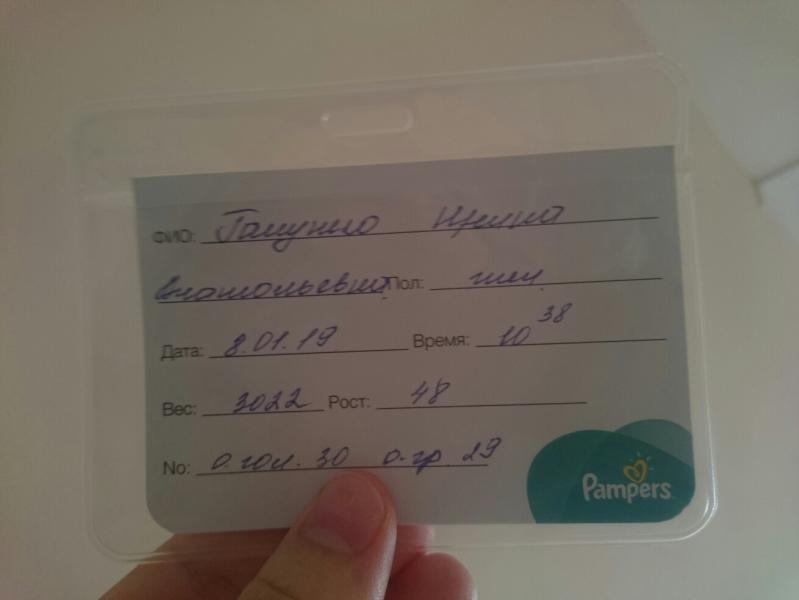 ФИО: Галунко Ирина
Анатольевна Пол: жен.
Дата: 8.01.19 Время: 10 38
Вес: 3022 Рост: 48
No: о. гол. 30 о. гр. 29
Pampers